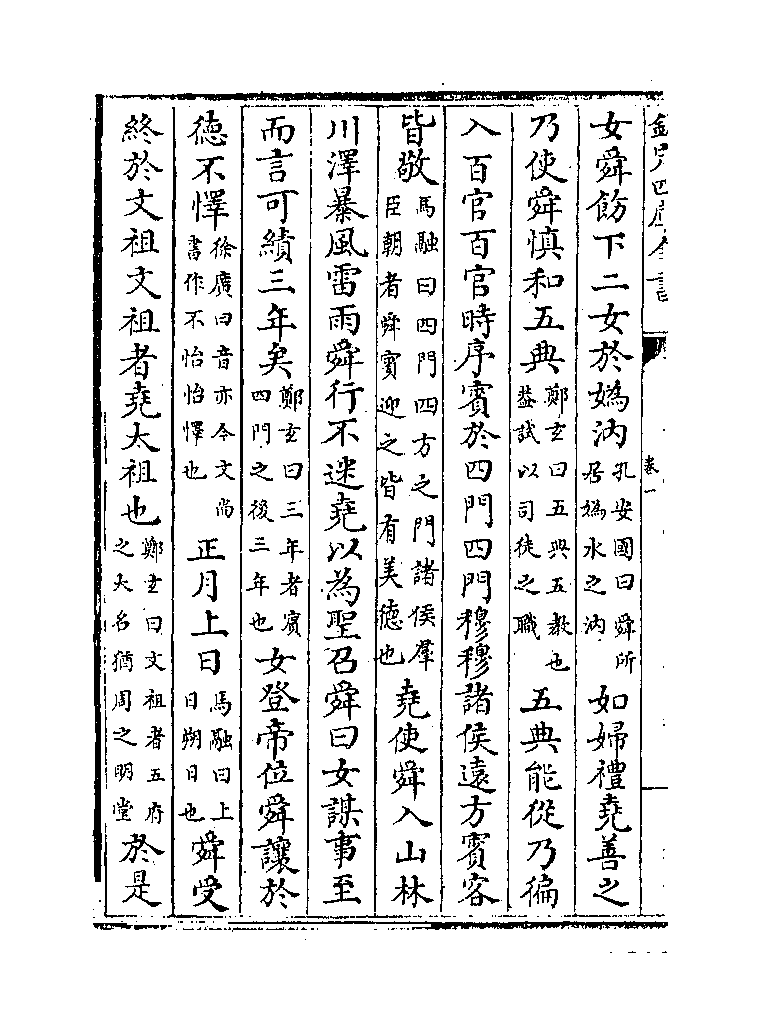 欽定四庫全書
卷一
女舜飭下二女於媯汭孔安國曰舜所居媯水之汭如婦禮堯善之
乃使舜慎和五典鄭𤣥曰五典五教也葢試以司徒之職五典能從乃徧
入百官百官時序賓於四門四門穆穆諸侯遠方賓客
皆敬馬融曰四門四方之門諸侯羣臣朝者舜賓迎之皆有美德也堯使舜入山林
川澤暴風雷雨舜行不迷堯以為聖召舜曰女謀事至
而言可績三年矣鄭𤣥曰三年者賓四門之後三年也女登帝位舜讓於
德不懌徐廣曰音亦今文尚書作不怡怡懌也正月上日馬融曰上日朔日也舜受
終於文祖文祖者堯太祖也鄭𤣥曰文祖者五府之大名猶周之明堂於是